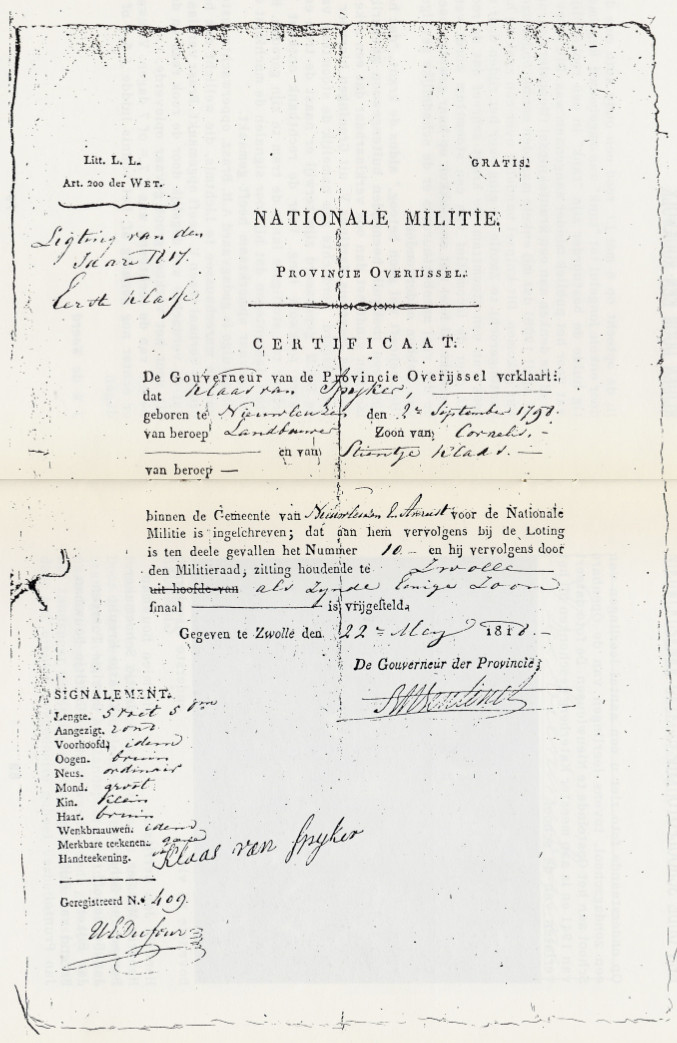 Litt. L. L.
GRATIS.
Art. 200 der WET.
NATIONALE MILITIE.
Ligting van den
Jaare 1817.
Eerste Klasse
PROVINCIE OVERIJSSEL.
CERTIFICAAT.
De Gouverneur van de Provincie Overijssel verklaart:
dat Klaas van Spyker,
geboren te Nieuwleuzen den 2e September 1798.
van beroep Landbouwer Zoon van Cornelis,
en van Stientje Klaas.
van beroep —
binnen de Gemeente van Nieuwleuzen voor de Nationale
Militie is ingeschreven; dat aan hem vervolgens bij de Loting
is ten deele gevallen het Nummer 10 — en hij vervolgens door
den Militieraad, zitting houdende te Zwolle
uit hoofde van als zynde Eenige Zoon
finaal — is vrijgesteld.
Gegeven te Zwolle den 22e Mey 1818.
De Gouverneur der Provincie,
SIGNALEMENT.
Lengte. 5 voet 5 dm
Aangezigt. rond
Voorhoofd, idem
Oogen. bruin
Neus. ordinair
Mond. groot
Kin. klein
Haar. bruin
Wenkbraauwen. idem
Merkbare teekenen. geene
Handteekening. Klaas van Spyker
Geregistreerd N. 409.